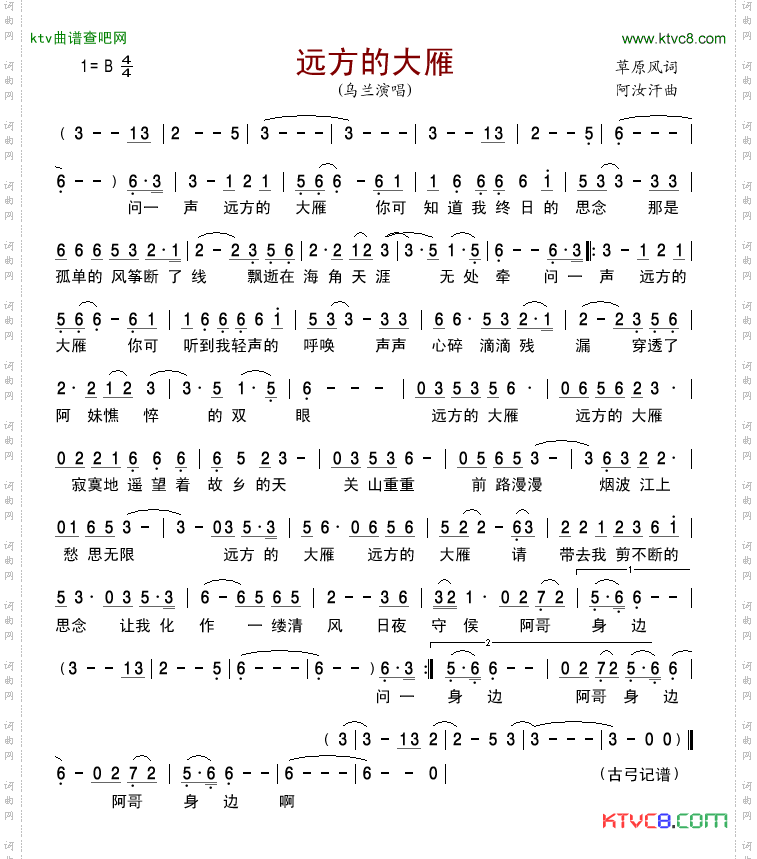 ktv曲谱查吧网
www.ktvc8.com
远方的大雁
1= B 4/4
草原风词
(乌兰演唱)
阿汝汗曲
( 3 - - 13 | 2 - - 5 | 3 - - - | 3 - - - | 3 - - 13 | 2 - - 5 | 6 - - -
6 - - ) 6·3 | 3 - 1 2 1 | 5 6 6 - 6 1 | 1 6 6 6 6 1 | 5 3 3 - 3 3
问一 声 远方的 大雁 你可 知道我终日的 思念 那是
6 6 6 5 3 2·1 | 2 - 2 3 5 6 | 2·2 1 2 3 | 3·5 1·5 | 6 - - 6·3 |: 3 - 1 2 1
孤单的 风筝断了线 飘逝在 海角天涯 无处牵 问一声 远方的
5 6 6 - 6 1 | 1 6 6 6 6 1 | 5 3 3 - 3 3 | 6 6·5 3 2·1 | 2 - 2 3 5 6
大雁 你可 听到我轻声的 呼唤 声声 心碎 滴滴残 漏 穿透了
2·2 1 2 3 | 3·5 1·5 | 6 - - - | 0 3 5 3 5 6· | 0 6 5 6 2 3·
阿妹憔悴 的双 眼 远方的大雁 远方的大雁
0 2 2 1 6 6 6 | 6 5 2 3 - | 0 5 3 6 - | 0 5 6 5 3 - | 3 6 3 2 2·
寂寞地遥望着 故乡的天 关山重重 前路漫漫 烟波江上
0 1 6 5 3 - | 3 - 0 3 5·3 | 5 6· 0 6 5 6 | 5 2 2 - 6 3 | 2 2 1 2 3 6 1
愁思无限 远方的 大雁 远方的 大雁 请 带去我剪不断的
1
5 3· 0 3 5·3 | 6 - 6 5 6 5 | 2 - - 3 6 | 3 2 1· 0 2 7 2 | 5·6 6 - -
思念 让我化 作 一缕清 风 日夜 守侯 阿哥 身边
2
( 3 - - 13 | 2 - - 5 | 6 - - - | 6 - - ) 6·3 :| 5·6 6 - - | 0 2 7 2 5·6 | 6 - - -
问一 身边 阿哥身边
( 3 | 3 - 1 3 2 | 2 - 5 3 | 3 - - - | 3 - 0 0 ) ||
6 - 0 2 7 2 | 5·6 6 - - | 6 - - - | 6 - - 0 |
(古弓记谱)
阿哥 身边 啊
KTVC8.COM
词曲网